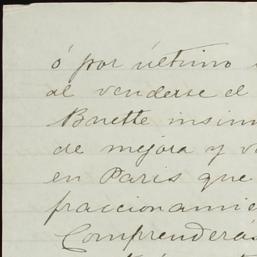 ó por último
al venderse el
Buette insinu
de mejora y v
en Paris que
fraccionamie
Comprenderás